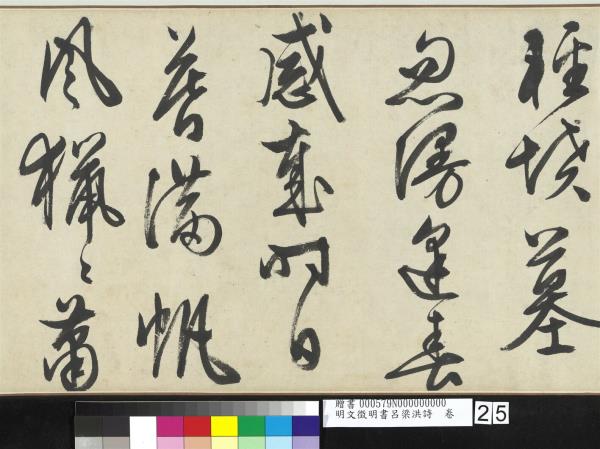 墳墓
忽漫逢春
感歲時日
暮滿帆
風獵〻蕭
贈書 000579N000000000
明文徵明書呂梁洪詩 卷
25